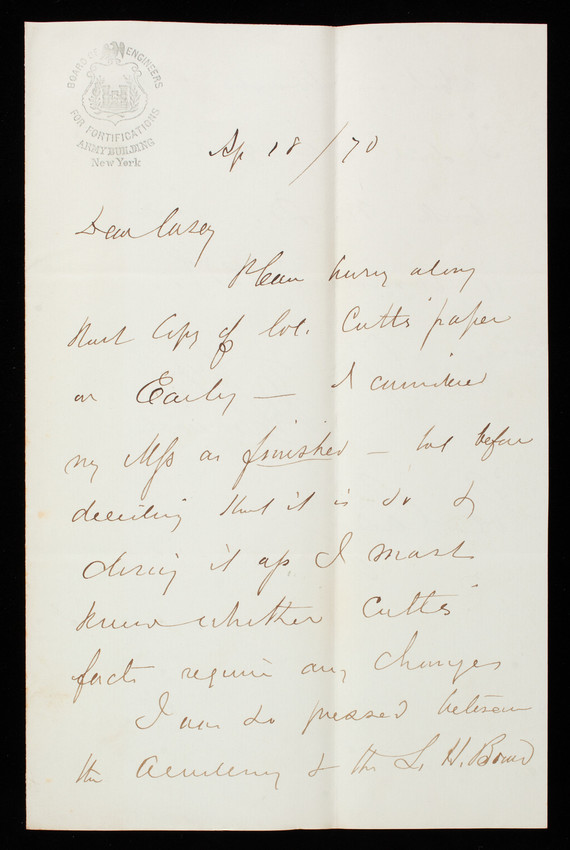 BOARD OF ENGINEERS
FOR FORTIFICATIONS
ARMY BUILDING
New York
Ap 18/70
Dear Casey
Please hurry along
that Copy of Col. Cutts' paper
on Early — I consider
my Mss as finished — but before
deciding that it is so &
doing it up, I must
know whether Cutts'
facts require any changes
I am so pressed between
the Academy & the L. H. Board